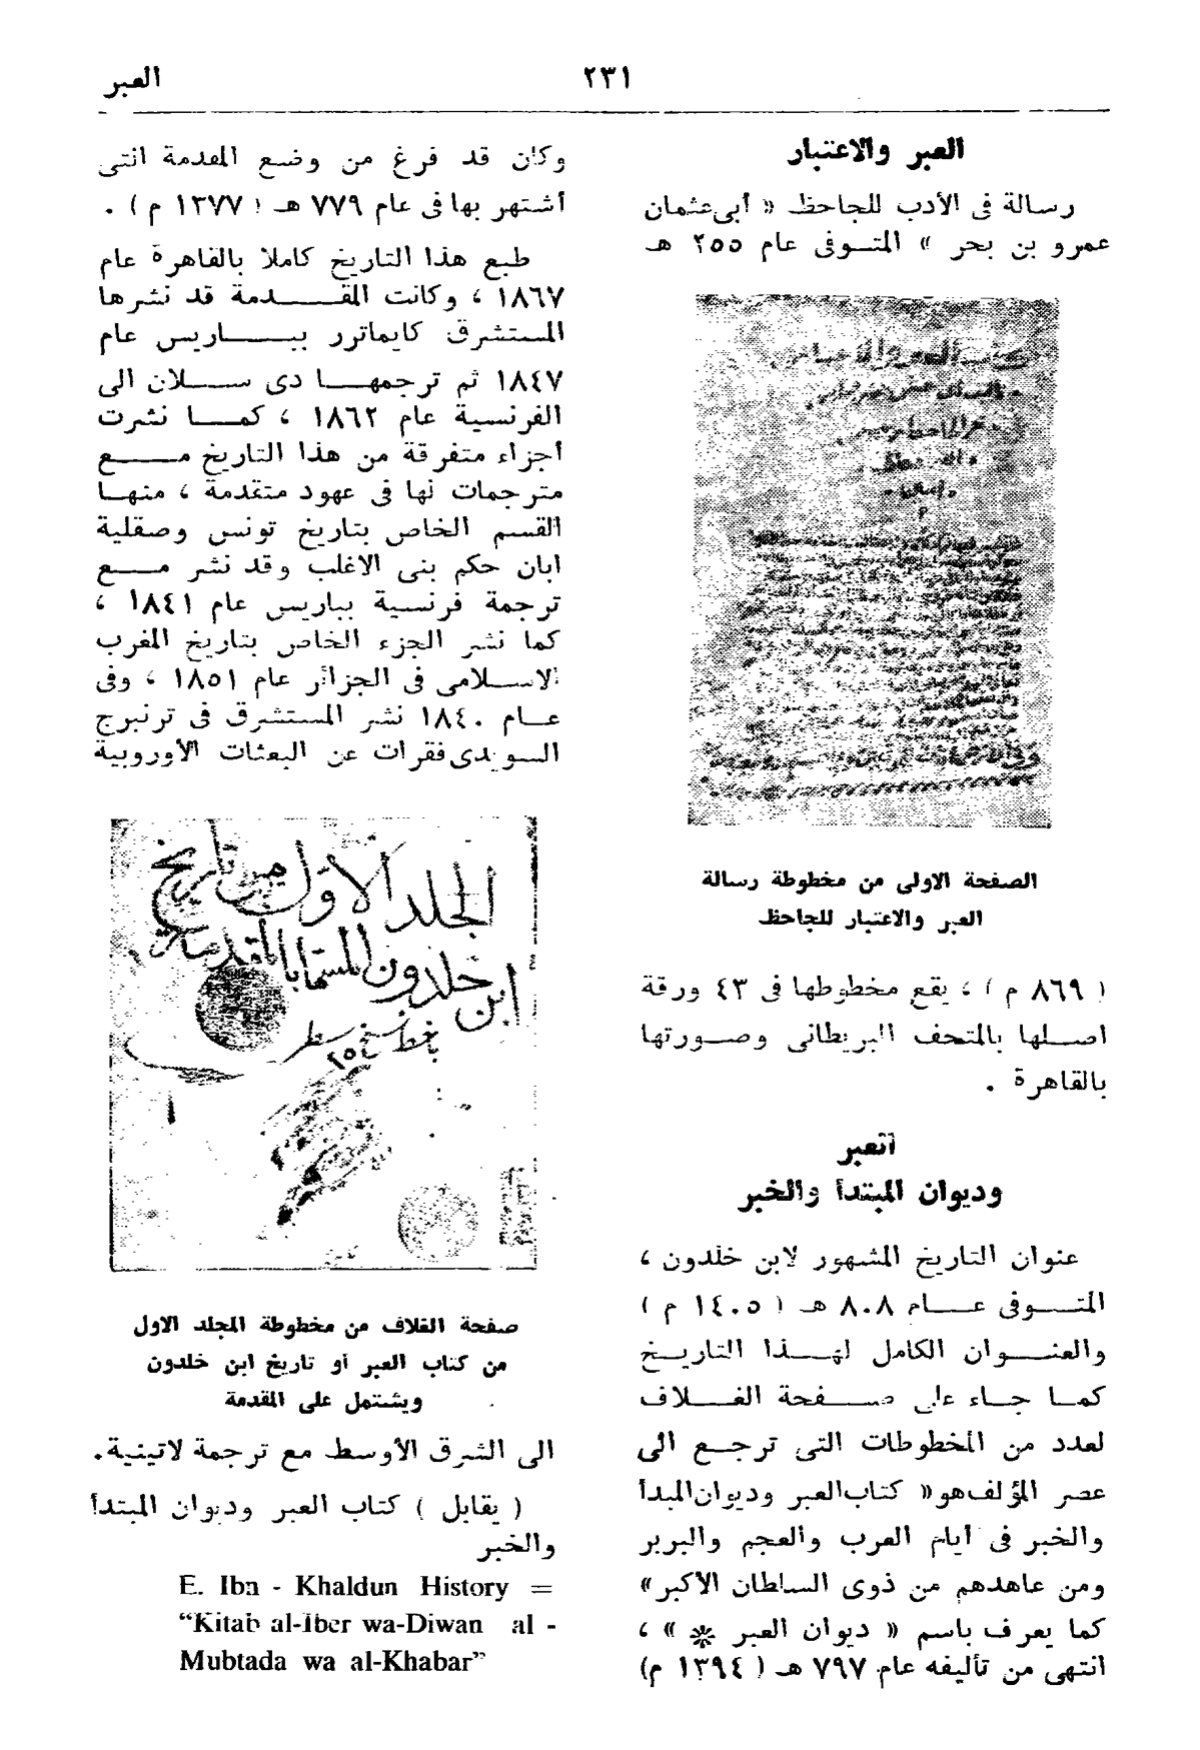 العبر
٢٣١
العبر والاعتبار
رسالة فى الأدب للجاحظ « أبى عثمان
عمرو بن بحر » المتـوفى عام ٢٥٥ هـ
الصفحة الاولى من مخطوطة رسالة
العبر والاعتبار للجاحظ
( ٨٦٩ م ) ، يقع مخطوطها فى ٤٣ ورقة
اصـلها بالمتحف البريطانى وصـورتها
بالقاهرة .
العبر
وديوان المبتدأ والخبر
عنوان التاريخ المشهور لابن خلدون ،
المتـوفى عـام ٨٠٨ هـ ( ١٤٠٥ م )
والعنـوان الكامل لهـذا التاريـخ
كمـا جـاء على صـفحة الغـلاف
لعدد من المخطوطات التى ترجـع الى
عصر المؤلف هو « كتاب العبر وديوان المبدأ
والخبر فى أيام العرب والعجم والبربر
ومن عاهدهم من ذوى السلطان الأكبر »
كما يعرف باسم « ديوان العبر * » ،
انتهى من تأليفه عام ٧٩٧ هـ ( ١٣٩٤ م )
وكان قد فرغ من وضع المقدمة التى
أشتهر بها فى عام ٧٧٩ هـ ( ١٣٧٧ م ) .
طبع هذا التاريخ كاملا بالقاهرة عام
١٨٦٧ ، وكانت المقـدمة قد نشرها
المستشرق كايماترر ببـاريس عام
١٨٤٧ ثم ترجمهـا دى سـلان الى
الفرنسية عام ١٨٦٢ ، كمـا نشرت
أجزاء متفرقة من هذا التاريخ مـع
مترجمات لها فى عهود متقدمة ، منهـا
القسم الخاص بتاريخ تونس وصقلية
ابان حكم بنى الاغلب وقد نشر مـع
ترجمة فرنسية بباريس عام ١٨٤١ ،
كما نشر الجزء الخاص بتاريخ المغرب
الاسـلامى فى الجزائر عام ١٨٥١ ، وفى
عـام ١٨٤٠ نشر المستشرق فى ترنبرج
السويدى فقرات عن البعثات الأوروبية
المجلد الاول من تاريخ
ابن خلدون المسما بالمقدمة
صفحة الغلاف من مخطوطة المجلد الاول
من كتاب العبر أو تاريخ ابن خلدون
ويشتمل على المقدمة
الى الشرق الأوسط مع ترجمة لاتينية .
( يقابل ) كتاب العبر وديوان المبتدأ
والخبر
E. Ibn - Khaldun History =
“Kitab al-Iber wa-Diwan al -
Mubtada wa al-Khabar”